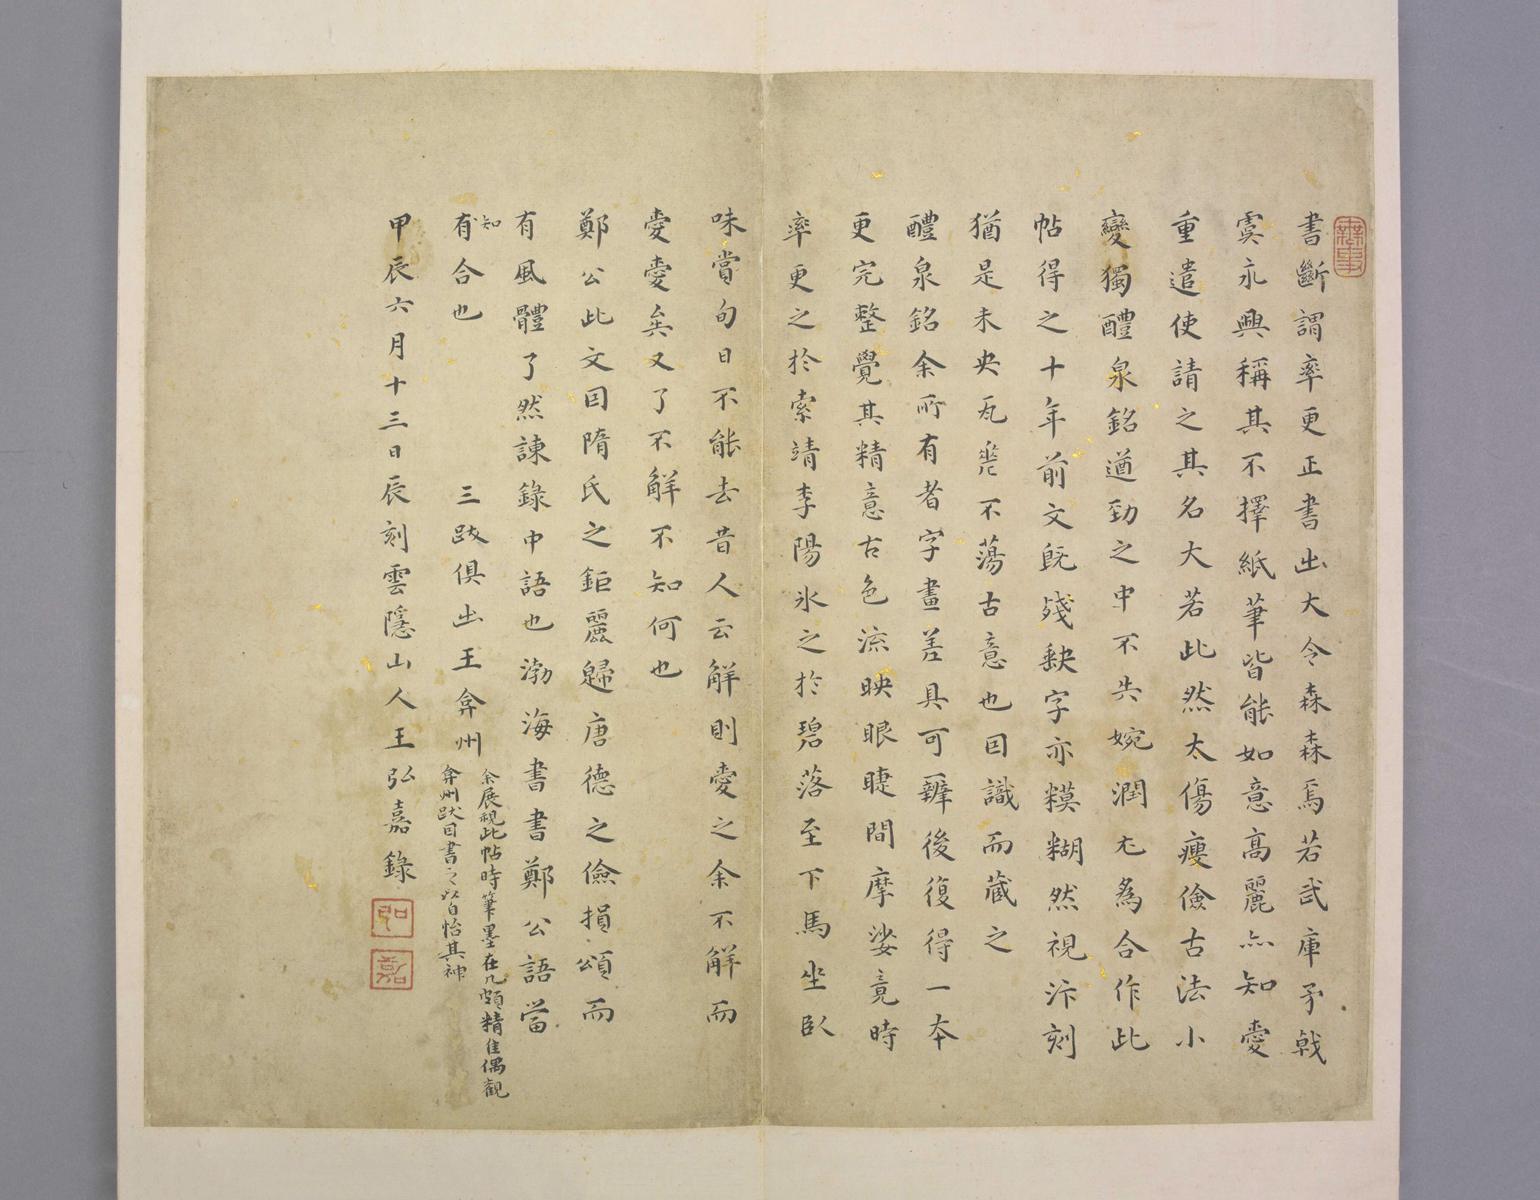 書斷謂率更正書出大令森森焉若武庫矛戟
虞永興稱其不擇紙筆皆能如意高麗亦知愛
重遣使請之其名大若此然太傷瘦儉古法小
變獨醴泉銘遒勁之中不失婉潤尤為合作此
帖得之十年前文既殘缺字亦糢糊然視汴刻
猶是未央瓦甃不蕩古意也因識而藏之
醴泉銘余所有者字畫差具可辨後復得一本
更完整覺其精意古色流映眼睫間摩娑竟時
率更之於索靖李陽氷之於碧落至下馬坐臥
味賞旬日不能去昔人云解則愛之余不解而
愛愛矣又了不解不知何也
鄭公此文因隋氏之鉅麗歸唐德之儉損頌而
有風體了然諫錄中語也渤海書書鄭公語當
知
有合也
三跋俱出王弇州
余展視此帖時筆墨在几頗精佳偶觀
弇州跋因書之以自怡其神
甲辰六月十三日辰刻雲隱山人王弘嘉錄
弘
嘉